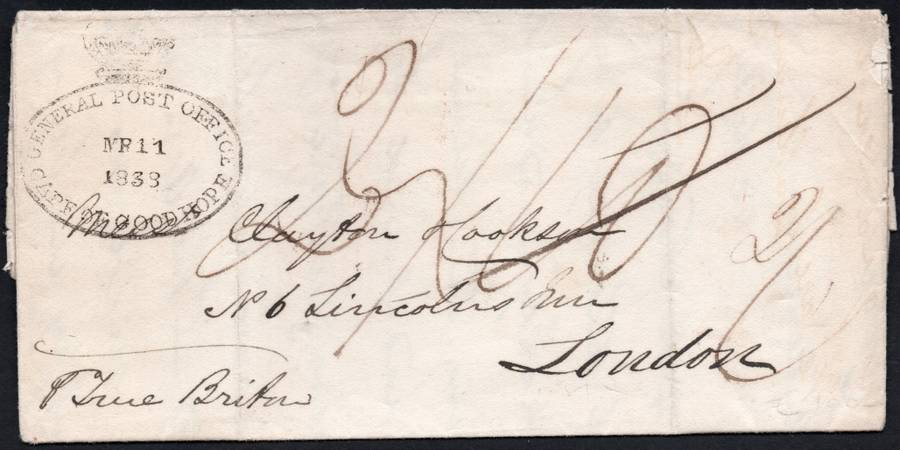 GENERAL POST OFFICE
MR 11
1838
CAPE OF GOOD HOPE
Clayton Hookson
No 6 Lincolns Inn
London
True Briton